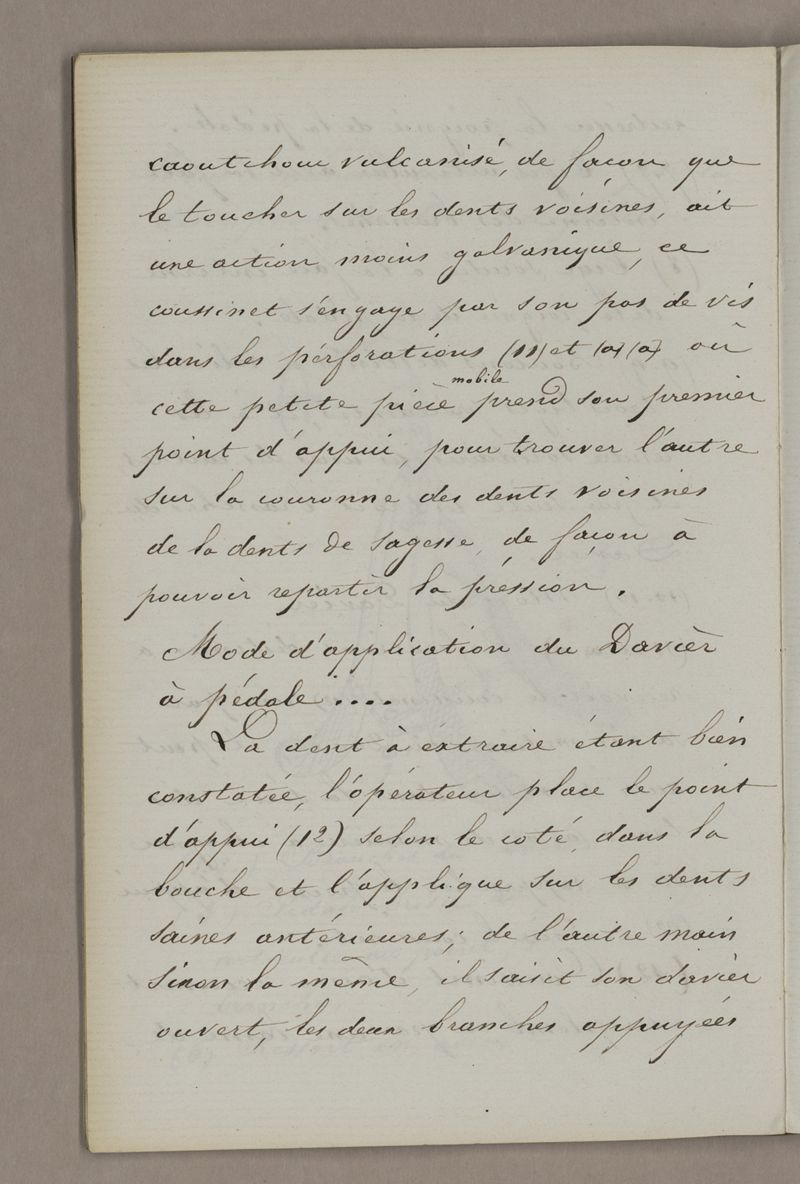 caoutchouc vulcanisé, de façon que
le toucher sur les dents voisines, ait
une action moins galvanique, ce
coussinet s'engage par son pas de vis
dans les pérforations (11) et (a) (a) où
cette petite pièce mobile prend son premier
point d'appui, pour trouver l'autre
sur la couronne des dents voisines
de la dents de sagesse, de façon à
pouvoir repartir la préssion.
Mode d'application du Davièr
à pédale....
La dent à éxtraire étant bien
constatée, l'opérateur place le point
d'appui (12) selon le coté, dans la
bouche et l'applique sur les dents
saines antérieures; de l'autre main
sinon la même, il saisit son davièr
ouvert, les deux branches appuyées